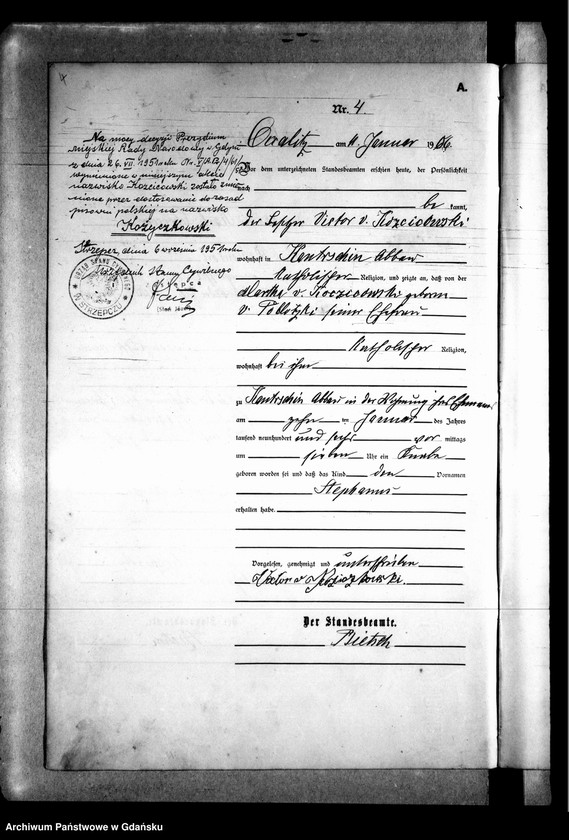 A.
Nr. 4
Na mocy decyzji Prezydium
Miejskiej Rady Narodowej w Gdyni
z dnia 26. VII. 1951 roku Nr.
wymienione w niniejszym akcie
nazwisko Kozciocowski zostało zmie-
nione przez dostosowanie do zasad
pisowni polskiej na nazwisko
Kożyczkowski
Strzepcz, dnia 6 września 1951 roku
Urzędnik Stanu Cywilnego
URZĄD STANU CYWILNEGO
W STRZEPCZU
am 11. Januar 1906.
Vor dem unterzeichneten Standesbeamten erschien heute, der Persönlichkeit
nach
be kannt,
der Besitzer Victor v.
wohnhaft in Kentrschin Abbau
katholischer Religion, und zeigte an, daß von der
v. geborene
v. seiner Ehefrau
katholischer Religion,
wohnhaft bei ihm
zu Kentrschin Abbau in der Wohnung ihres Ehemannes
am zehn ten Januar des Jahres
tausend neunhundert und sechs vor mittags
um sieben Uhr ein Knabe
geboren worden sei und daß das Kind den Vornamen
Stephanus
erhalten habe.
Vorgelesen, genehmigt und unterschrieben
Der Standesbeamte.
Archiwum Państwowe w Gdańsku